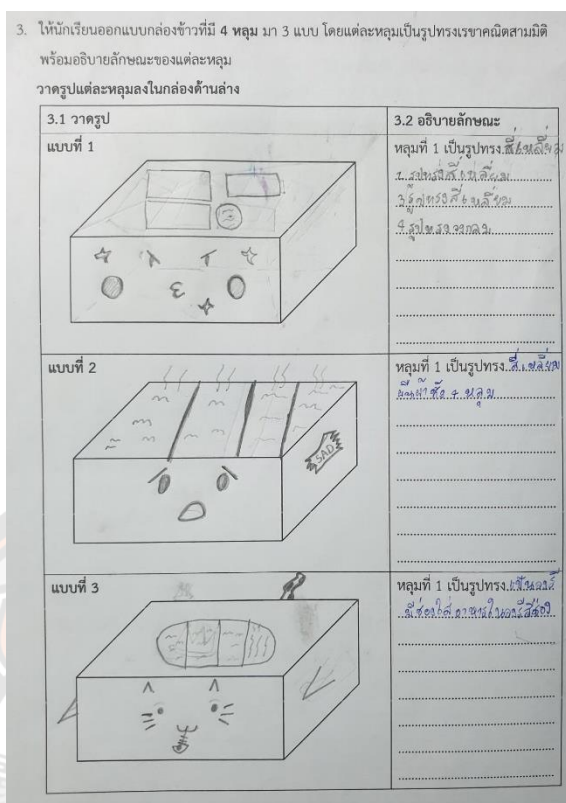 3. ให้นักเรียนออกแบบกล่องข้าวที่มี 4 หลุม มา 3 แบบ โดยแต่ละหลุมเป็นรูปทรงเรขาคณิตสามมิติ
พร้อมอธิบายลักษณะของแต่ละหลุม
วาดรูปแต่ละหลุมลงในกล่องด้านล่าง
3.1 วาดรูป
3.2 อธิบายลักษณะ
แบบที่ 1
หลุมที่ 1 เป็นรูปทรง สี่เหลี่ยม
2 รูปทรงสี่เหลี่ยม
3 รูปทรงสี่เหลี่ยม
4 รูปทรงวงกลม
แบบที่ 2
หลุมที่ 1 เป็นรูปทรง สี่เหลี่ยม
ผืนผ้าทั้ง 4 หลุม
SAD
แบบที่ 3
หลุมที่ 1 เป็นรูปทรง เป็นวงรี
มีช่องใส่อาหารในวงรีสี่ช่อง